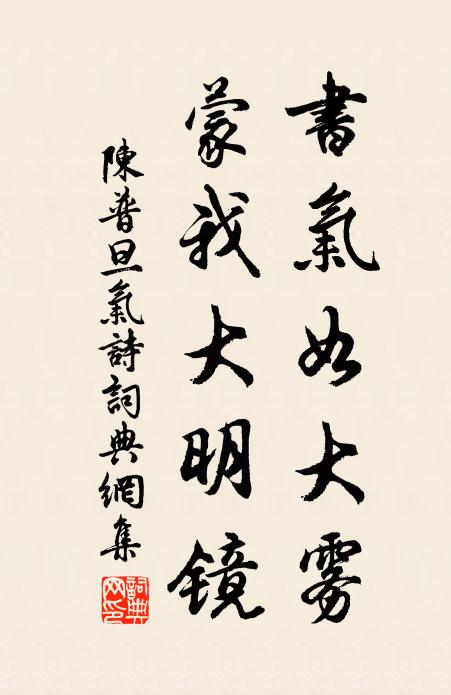 書氣如大雾
蒙我大明鏡
陳普旦氣詩詞典網集
詞典网印